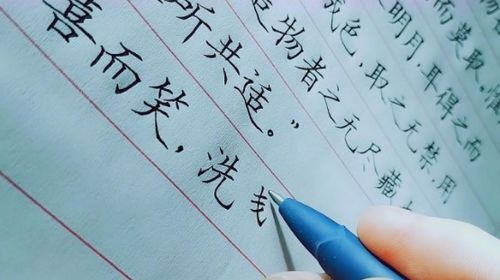 而莫取，
明月，耳得之而
成色，取之无禁，用
造物者之无尽藏
所共适。”
喜而笑，洗